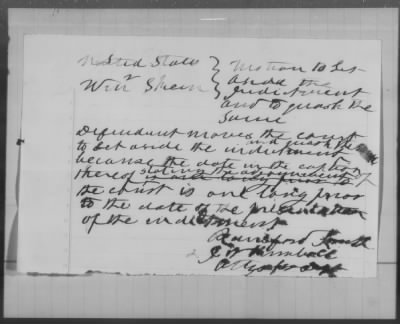 United States } Motion to Set
Wm Skein } aside the
Indictment
and to quash the
same
Defendant moves the court
to set aside and quash the indictment
because the date in the caption
thereof stating the commencement of
the court is one long prior
to the date of the presentation
of the indictment
Rainsford Smith
J A Kimball
Attys for deft